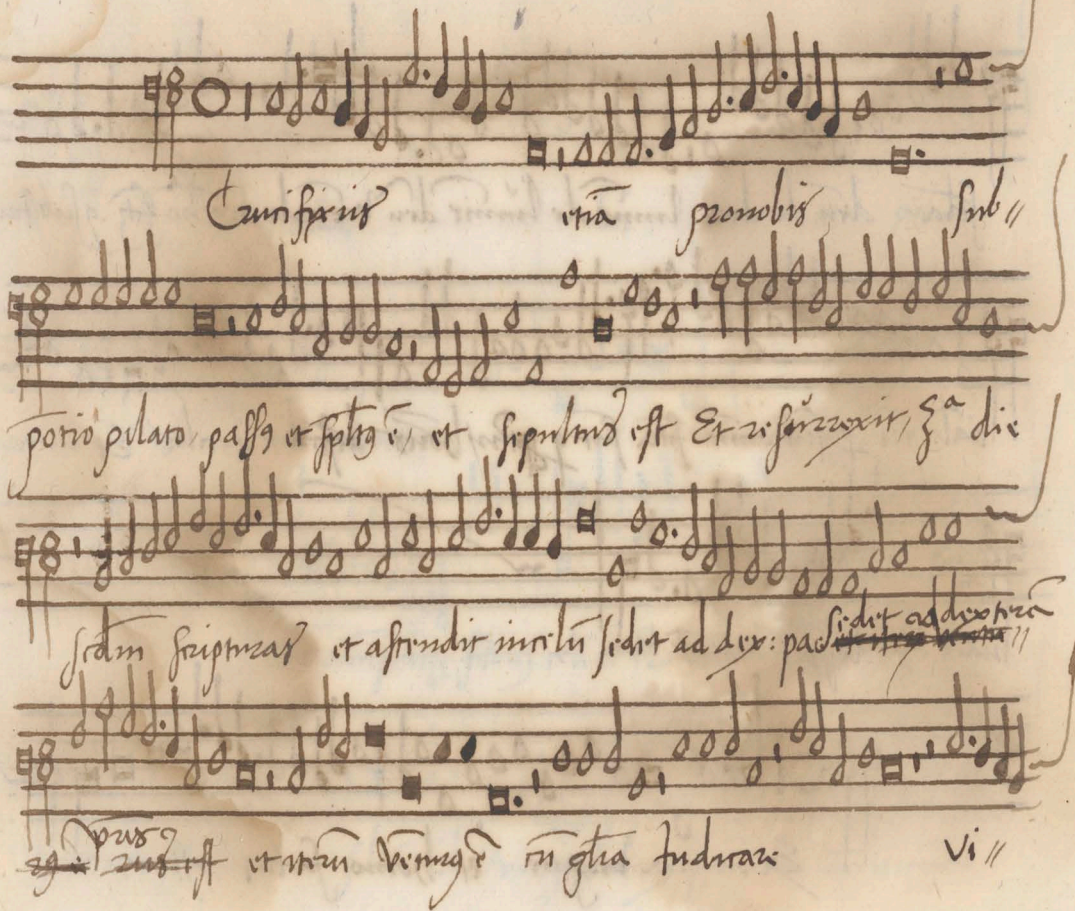 Crucifixus etiā pronobis sub//
pōtio pilato, passꝯ et sepltꝯ ē, et sepultus est Et resurrexit, 3ª die
scdm scripturas et ascendit incelū sedet ad dex: sedet ad dexterā
pris et iterū venturꝯ ē cū glīa Iudicare vi//